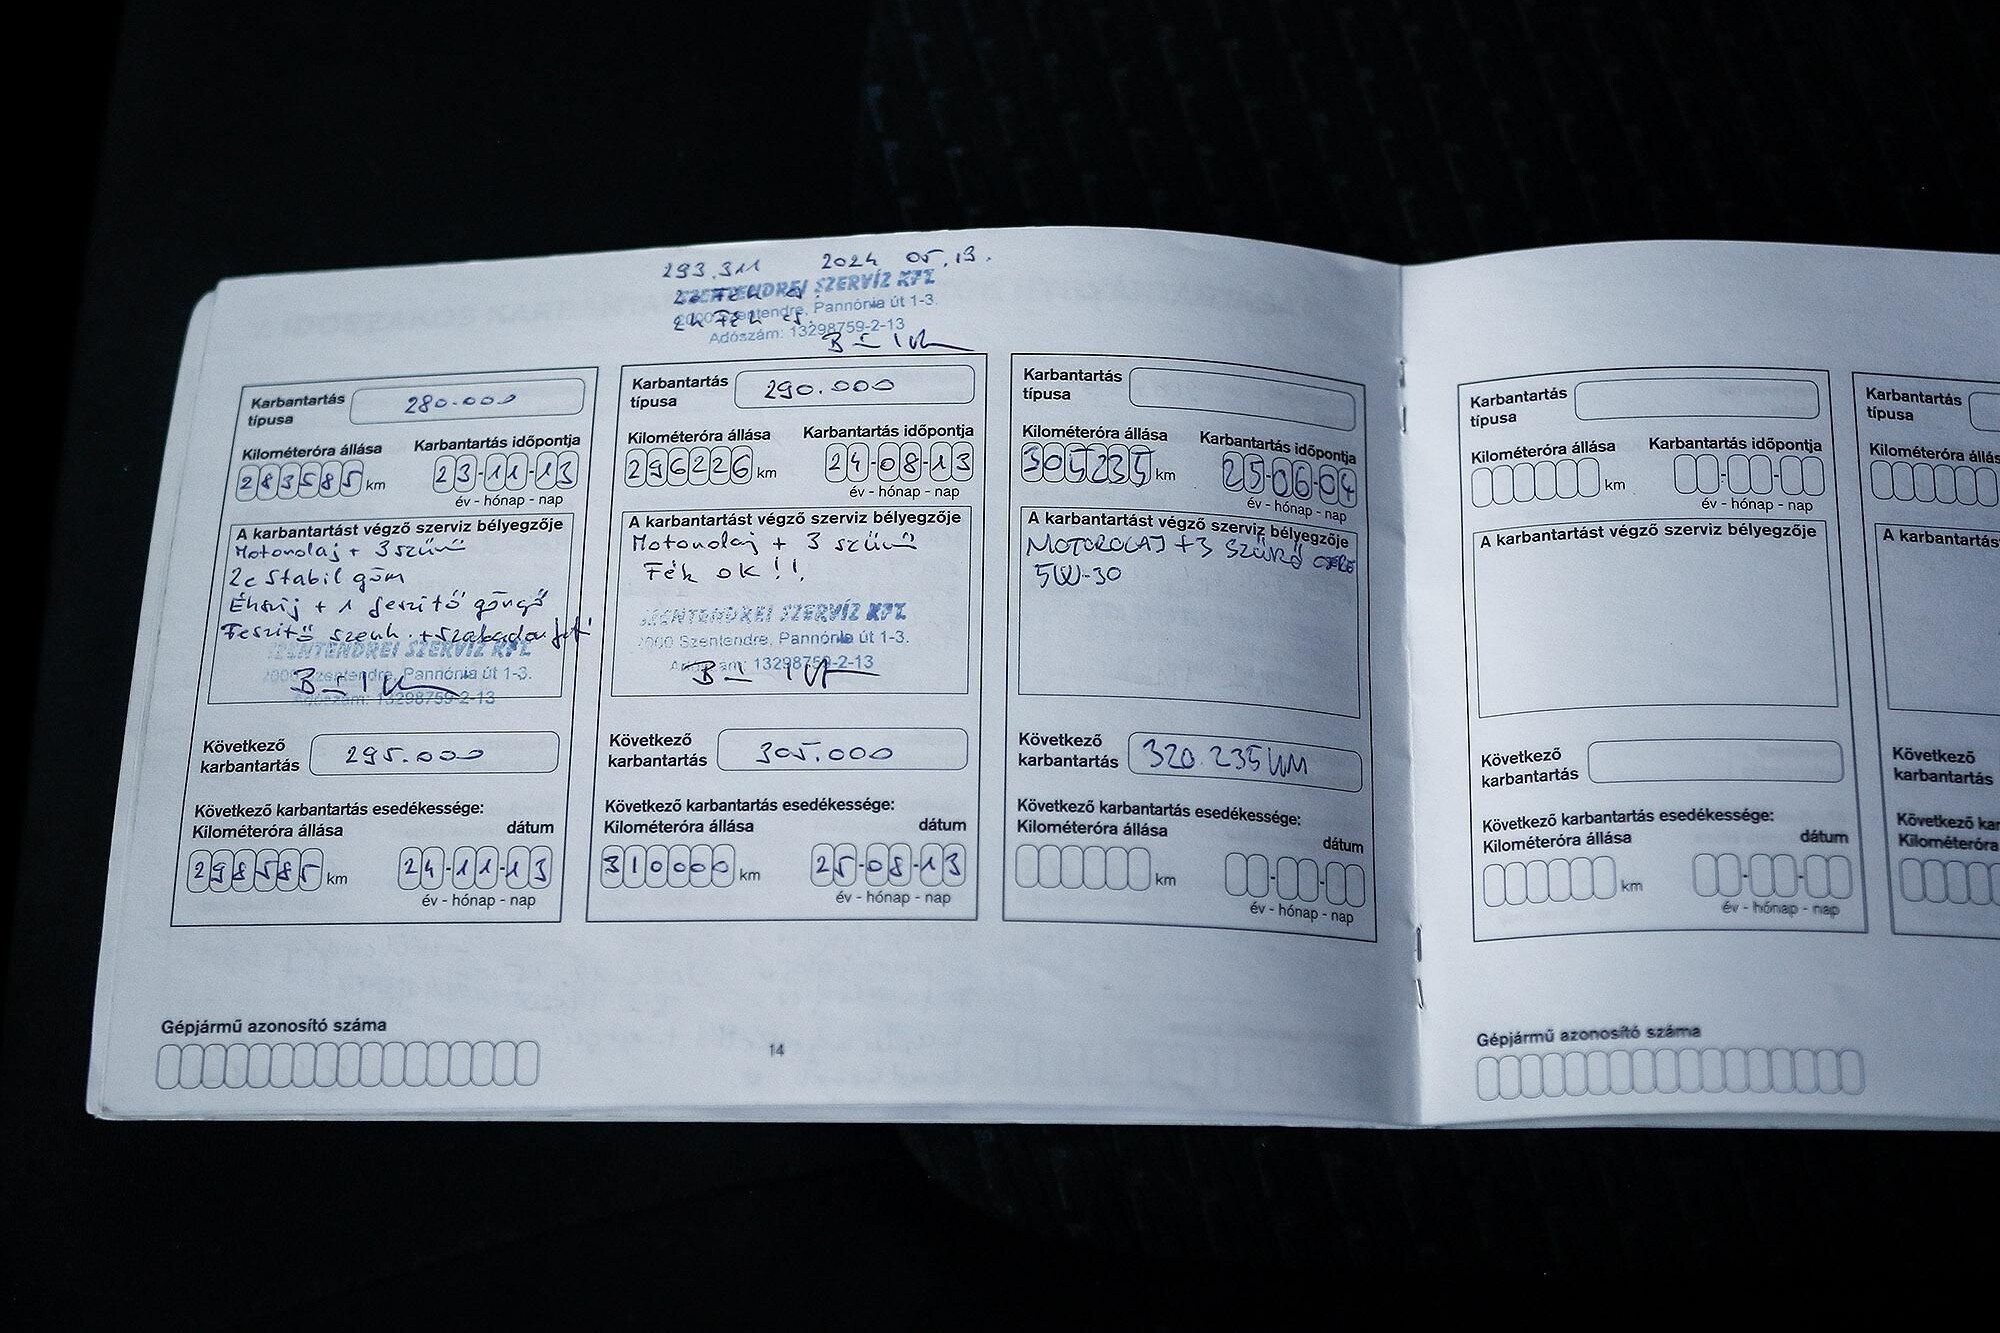 293.311 2024 05.13.
SZENTENDREI SZERVÍZ KFT
2000 Szentendre, Pannónia út 1-3.
Adószám: 13298759-2-13
Karbantartás
típusa
280.000
Kilométeróra állása Karbantartás időpontja
283585 km 23-11-13
év - hónap - nap
A karbantartást végző szerviz bélyegzője
Motorolaj + 3 szűrő
2e Stabil göm
Ékszíj + 1 feszítő görgő
Feszítő szerk. + szabadonfutó
SZENTENDREI SZERVÍZ KFT
2000 Szentendre, Pannónia út 1-3.
Adószám: 13298759-2-13
Következő
karbantartás
295.000
Következő karbantartás esedékessége:
Kilométeróra állása dátum
298585 km 24-11-13
év - hónap - nap
Karbantartás
típusa
290.000
Kilométeróra állása Karbantartás időpontja
296226 km 24-08-13
év - hónap - nap
A karbantartást végző szerviz bélyegzője
Motorolaj + 3 szűrő
Fék ok!!
SZENTENDREI SZERVÍZ KFT
2000 Szentendre, Pannónia út 1-3.
Adószám: 13298759-2-13
Következő
karbantartás
305.000
Következő karbantartás esedékessége:
Kilométeróra állása dátum
310000 km 25-08-13
év - hónap - nap
Karbantartás
típusa
Kilométeróra állása Karbantartás időpontja
305235 km 25-06-04
év - hónap - nap
A karbantartást végző szerviz bélyegzője
MOTOROLAJ +3 SZŰRŐ CSERE
5W-30
Következő
karbantartás
320.235 KM
Következő karbantartás esedékessége:
Kilométeróra állása dátum
km
év - hónap - nap
Gépjármű azonosító száma
14
Karbantartás
típusa
Kilométeróra állása Karbantartás időpontja
km
év - hónap - nap
A karbantartást végző szerviz bélyegzője
Következő
karbantartás
Következő karbantartás esedékessége:
Kilométeróra állása dátum
km
év - hónap - nap
Gépjármű azonosító száma
Karbantartás
típusa
Kilométeróra állás
A karbantartás
Következő
karbantartás
Következő kar
Kilométeróra